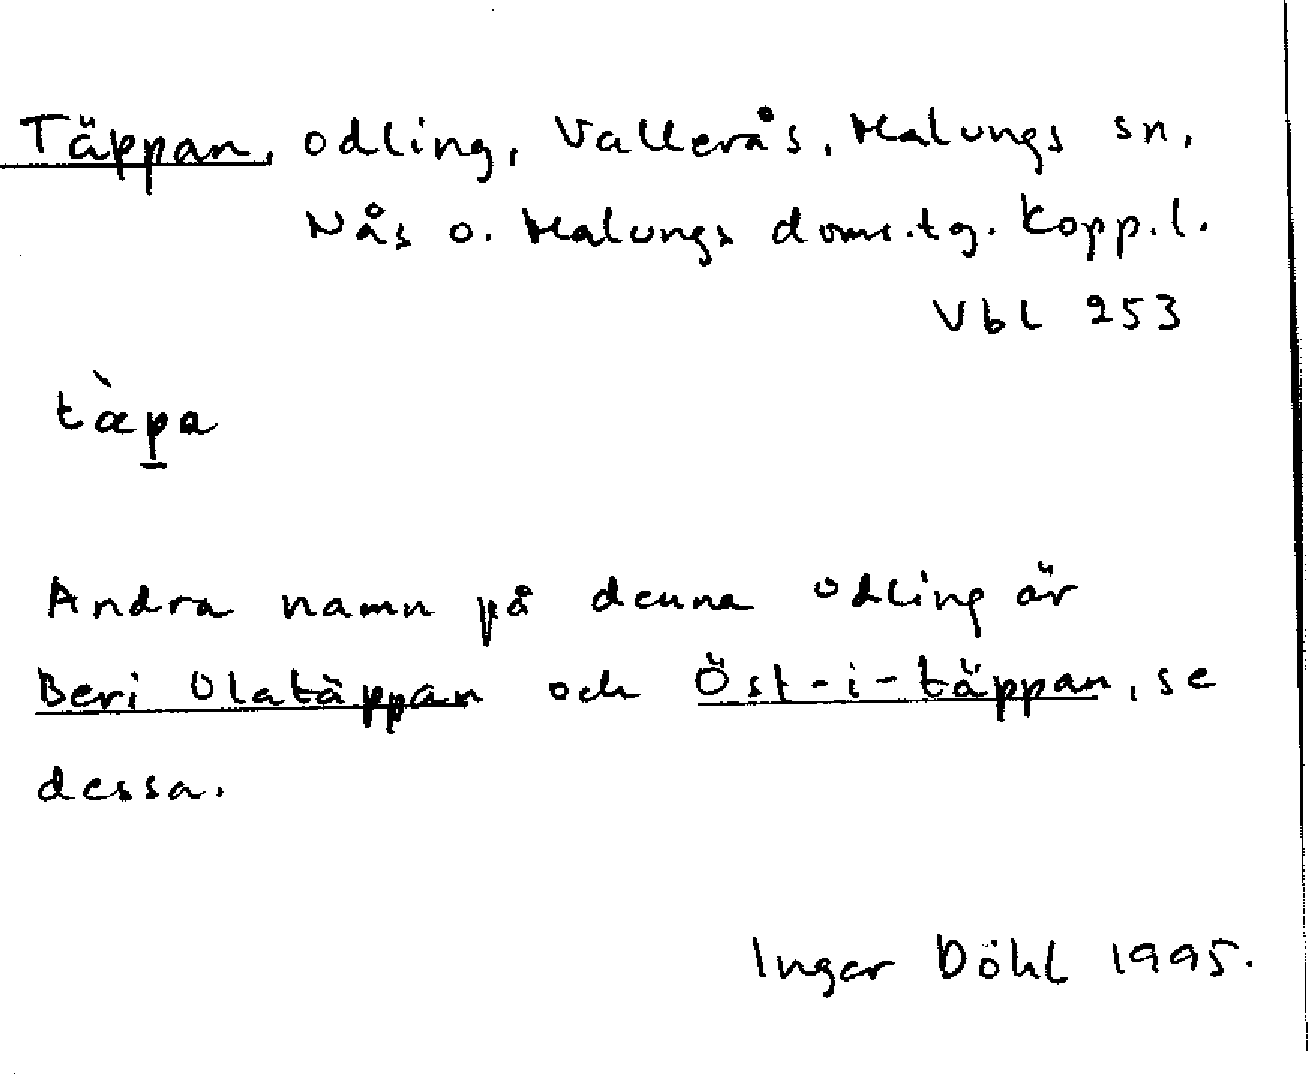 Täppan, odling, Vallerås, Malungs sn,
Nås o. Malungs doms.tg. Kopp.l.
Vbl 253
tæ̀p̲a
Andra namn på denna odling är
Beri Olatäppan och Öst-i-täppan, se
dessa.
Inger Döhl 1995.